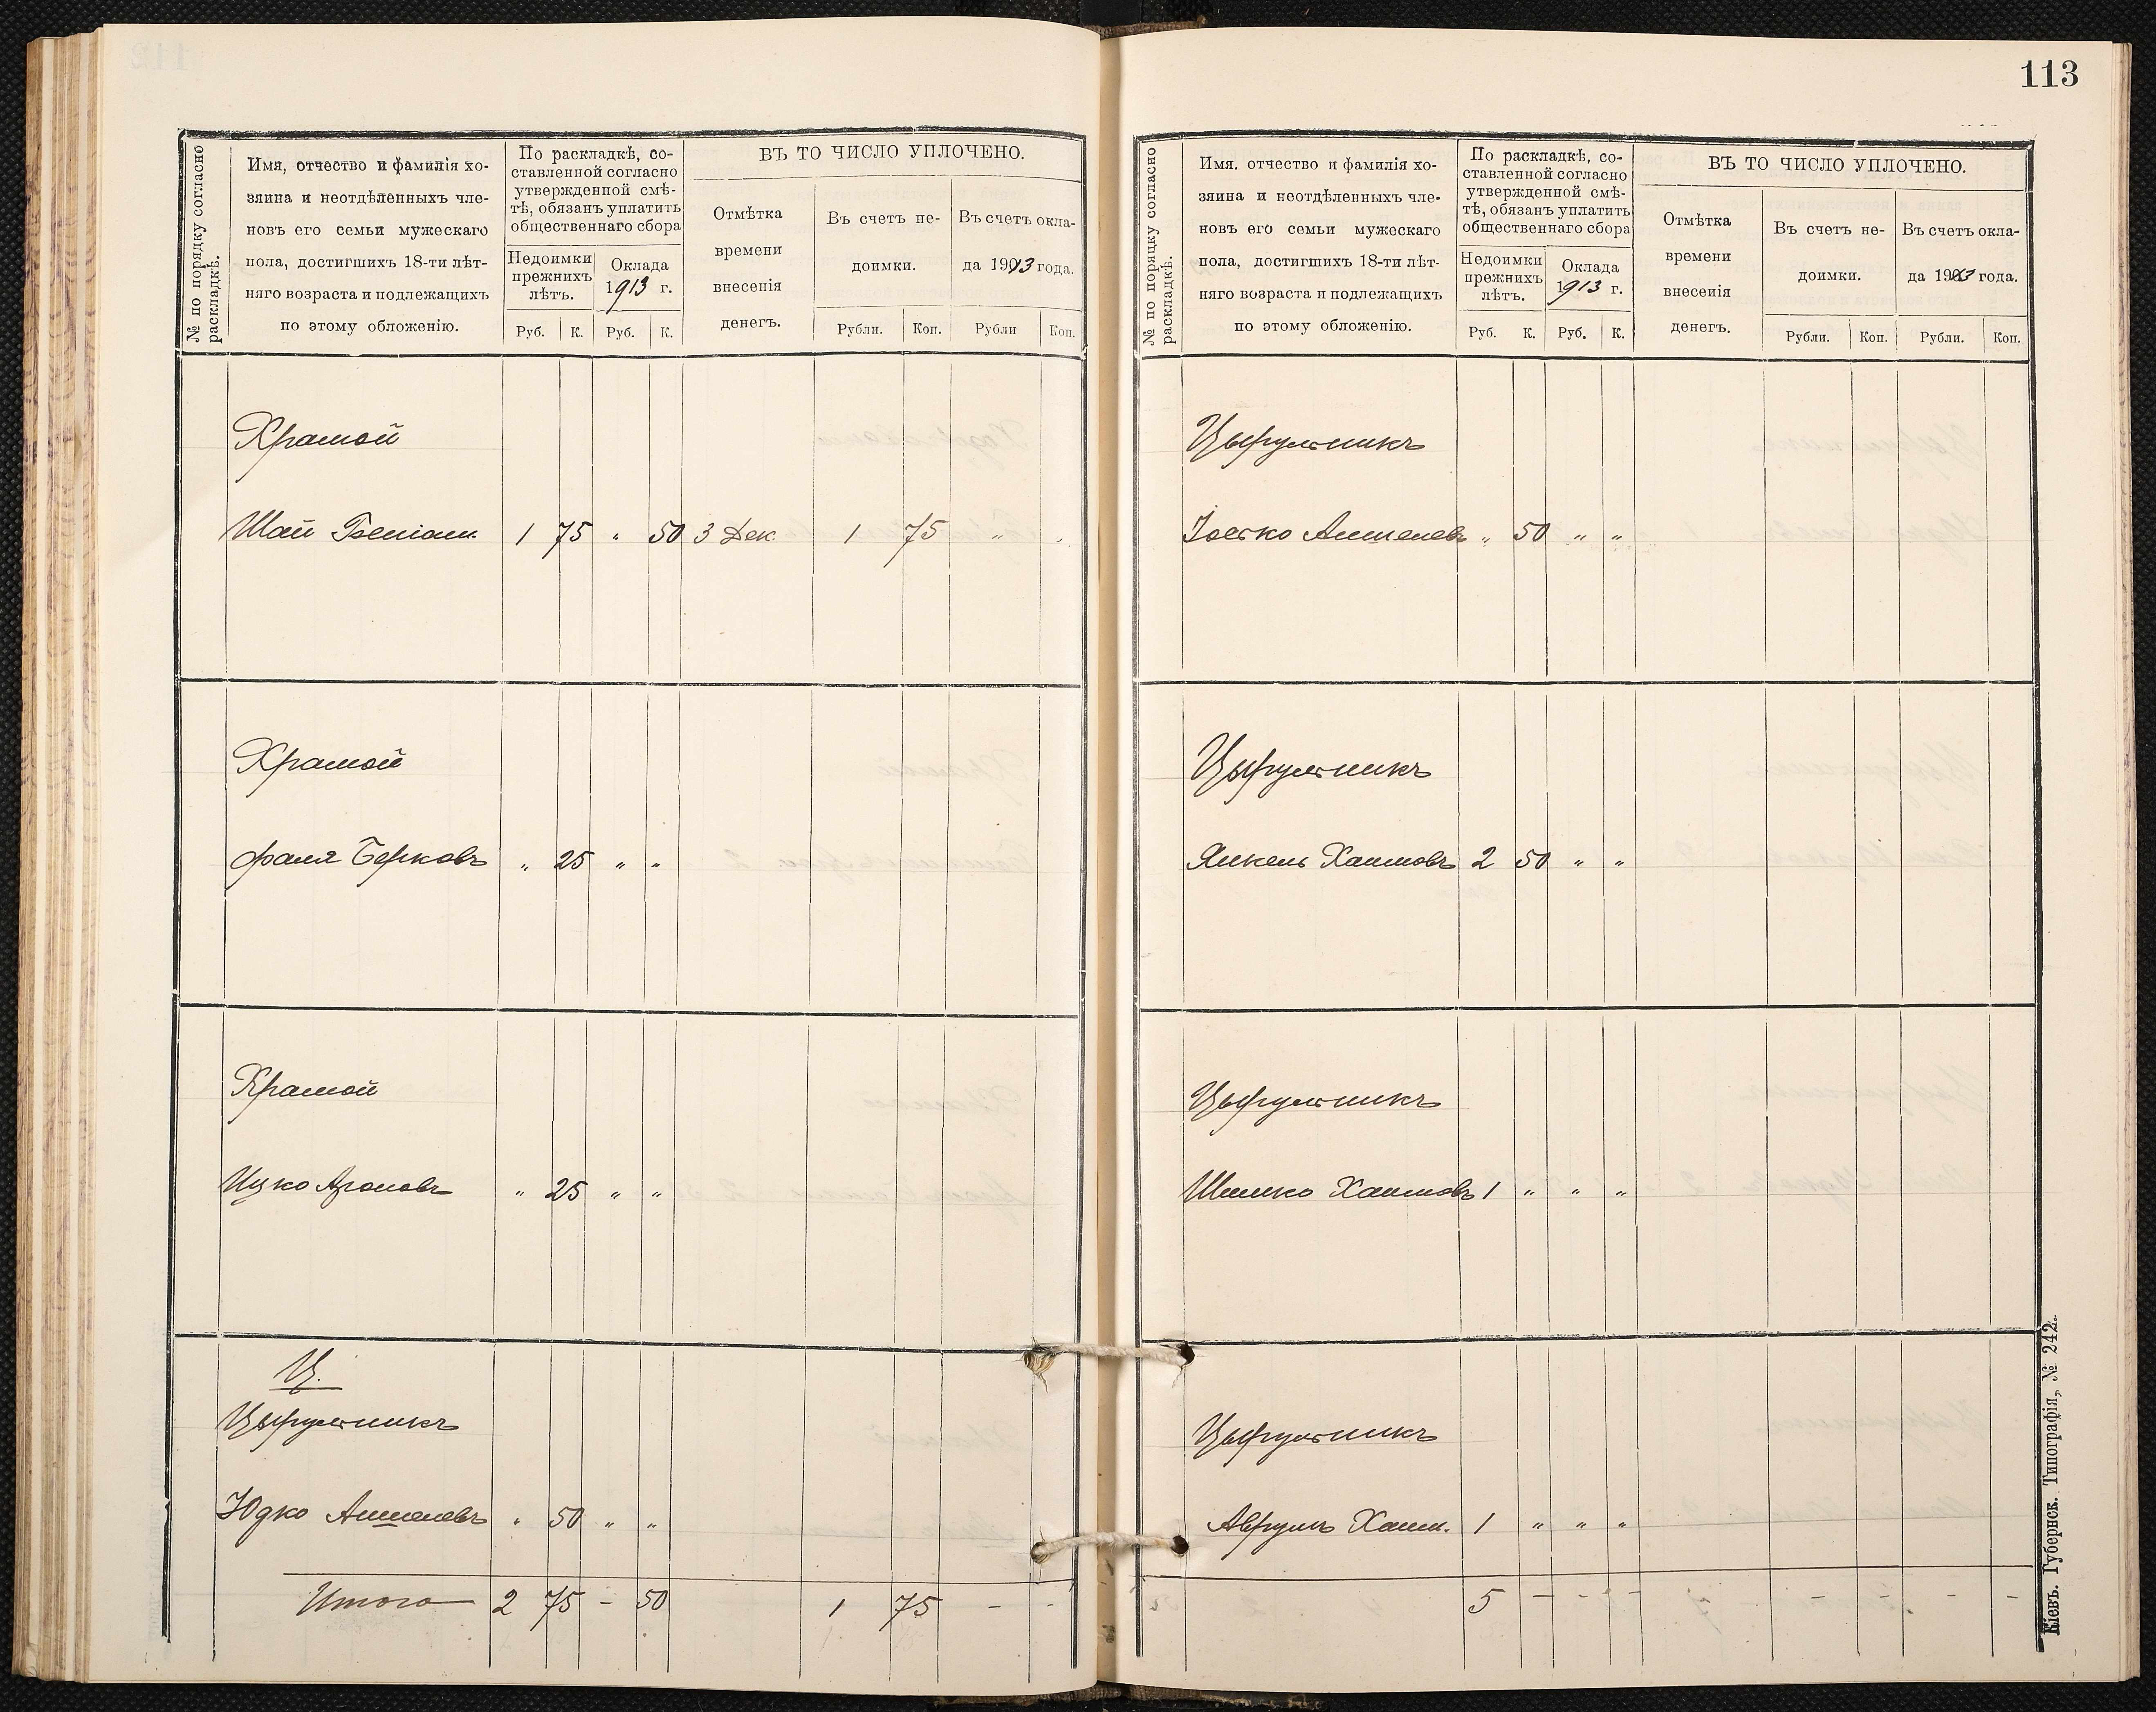 № по порядку согласно
раскладкѣ.
Имя, отчество и фамилія хо-
зяина и неотдѣленныхъ чле-
новъ его семьи мужескаго
пола, достигшихъ 18-ти лѣт-
няго возраста и подлежащихъ
по этому обложенію.
По раскладкѣ, со-
ставленной согласно
утвержденной смѣ-
тѣ, обязанъ уплатить
общественнаго сбора
Недоимки
прежнихъ
лѣтъ.
Оклада
1913 г.
Руб. К. Руб. К.
ВЪ ТО ЧИСЛО УПЛОЧЕНО.
Отмѣтка
времени
внесенія
денегъ.
Въ счетъ не-
доимки.
Въ счетъ окла-
да 1913 года.
Рубли. Коп. Рубли Коп.
Храмой
Шай 1 75 „ 50 3 Дек. 1 75 „ „
Храмой
Фаля Берковъ „ 25 „ „
Храмой
Ицко Ароновъ „ 25 „ „
Ц.
Цырульникъ
Юдко Аншелевъ „ 50 „ „
Итого 2 75 – 50 1 75 – –
113
№ по порядку согласно
раскладкѣ.
Имя. отчество и фамилія хо-
зяина и неотдѣленныхъ чле-
новъ его семьи мужескаго
пола, достигшихъ 18-ти лѣт-
няго возраста и подлежащихъ
по этому обложенію.
По раскладкѣ, со-
ставленной согласно
утвержденной смѣ-
тѣ, обязанъ уплатить
общественнаго сбора
Недоимки
прежнихъ
лѣтъ.
Оклада
1913 г.
Руб. К. Руб. К.
ВЪ ТО ЧИСЛО УПЛОЧЕНО.
Отмѣтка
времени
внесенія
денегъ.
Въ счетъ не-
доимки.
Въ счетъ окла-
да 1913 года.
Рубли. Коп. Рубли. Коп.
Цырульникъ
Іосько Аншелевъ „ 50 „ „
Цырульникъ
Янкель Хаимовъ 2 50 „ „
Цырульникъ
Шимко Хаимовъ 1 „ „ „
Цырульникъ
Аврумъ Хаим. 1 „ „ „
5 – – – – – – –
Кіевъ. Губернск. Типографія, № 242.